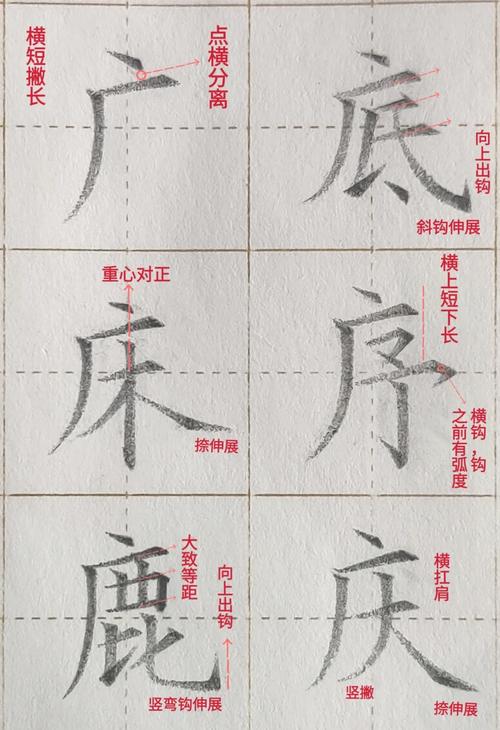 横短撇长
广
点横分离
底
向上出钩
斜钩伸展
重心对正
床
捺伸展
横上短下长
序
横钩，钩
之前有弧度
鹿
大致等距
向上出钩
竖弯钩伸展
庆
横扛肩
竖撇
捺伸展